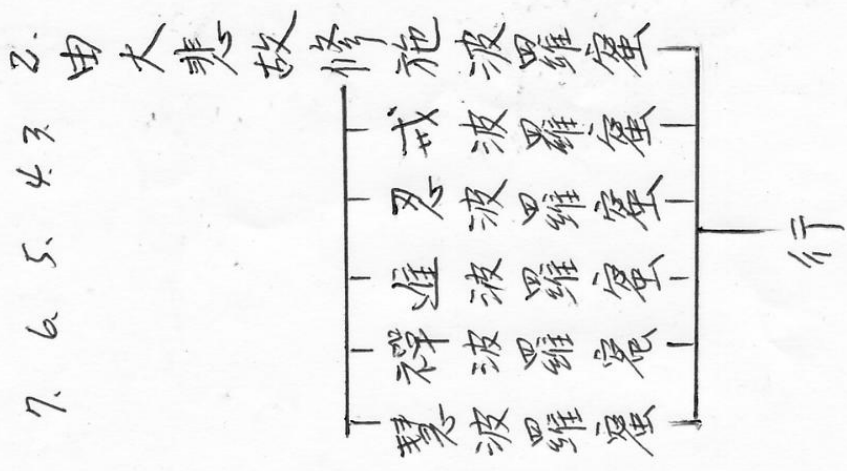 2. 由大悲故修施波羅蜜
3. 戒波羅蜜
4. 忍波羅蜜
5. 進波羅蜜
6. 禪波羅蜜
7. 慧波羅蜜
行